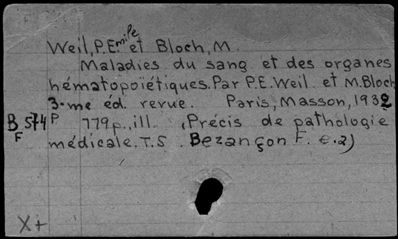 Weil, P. Emile et Bloch, M.
Maladies du sang et des organes
hématopoïétiques. Par P.E. Weil et M. Bloch
3-me éd. revue. Paris, Masson, 1932
B 574 P 779p., ill. (Précis de pathologie
F médicale. T.5. Bezançon F. e.a)
X+